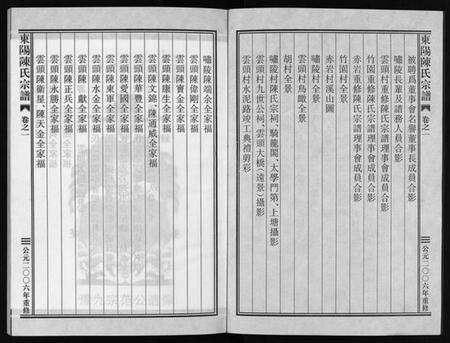 東陽陳氏宗譜 卷之一
被聘爲董事會名譽董事長成員合影
嘯陵長輩及譜務人員合影
雲頭村重修陳氏宗譜理事會成員合影
竹園村重修陳氏宗譜理事會成員合影
赤岩重修陳氏宗譜理事會成員合影
竹園村全景
赤岩村溪山圖
嘯陵村全景
雲頭村鳥瞰全景
胡村全景
嘯陵村陳氏宗祠、騎龍閣、太學門第、上塘攝影
雲頭村九世公祠、雲頭大橋(遠景)攝影
雲頭村水泥路竣工典禮剪彩
公元二〇〇六年重修
東陽陳氏宗譜 卷之一
嘯陵陳端余全家福
雲頭陳偉剛全家福
雲頭陳寶金全家福
雲頭陳康生全家福
雲頭陳文錦、陳通威全家福
雲頭陳華豐全家福
雲頭陳愛國全家福
雲頭陳東軍全家福
雲頭陳水金全家福
雲頭陳獻全家福
雲頭陳正兵全家福
雲頭陳永勝全家福
雲頭陳衛星、陳天金全家福
公元二〇〇六年重修